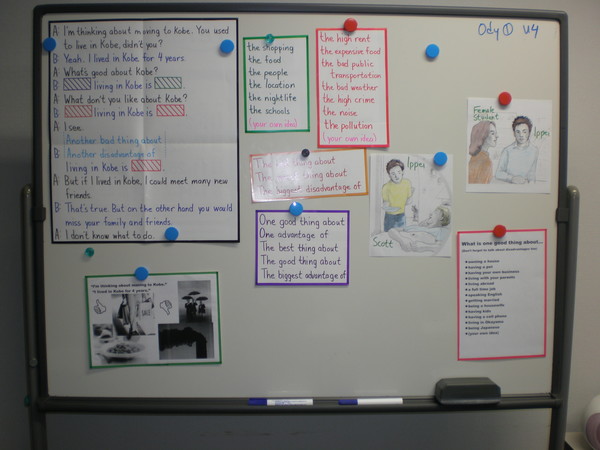 Ody ① U4
A I'm thinking about moving to Kobe. You used
to live in Kobe, didn't you?
B Yeah. I lived in Kobe for 4 years.
A What's good about Kobe?
B living in Kobe is
A What don't you like about Kobe?
B living in Kobe is
A I see.
Another bad thing about
B Another disadvantage of
living in Kobe is
A But if I lived in Kobe, I could meet many new
friends.
B That's true. But on the other hand you would
miss your family and friends.
A I don't know what to do.
the shopping
the food
the people
the location
the nightlife
the schools
(your own idea)
the high rent
the expensive food
the bad public
transportation
the bad weather
the high crime
the noise
the pollution
(your own idea)
The about
The thing about
The biggest disadvantage of
One good thing about
One advantage of
The best thing about
The good thing about
The biggest advantage of
Ippei
Scott
Female
Student
Ippei
"I'm thinking about moving to Kobe."
"I lived in Kobe for 4 years."
SALE
What is one good thing about...
owning a house
having a pet
having your own business
living with your parents
living abroad
a full time job
speaking English
getting married
being a housewife
having kids
having a cell phone
living in Okayama
being Japanese
(your own idea)